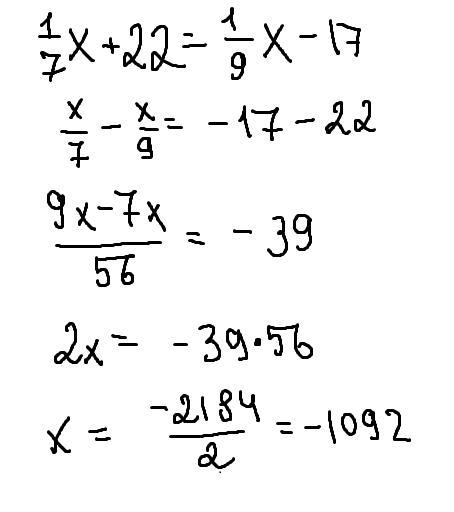 1/7 x + 22 = 1/9 x - 17
x/7 - x/9 = -17 - 22
(9x - 7x)/56 = -39
2x = -39·56
x = -2184/2 = -1092